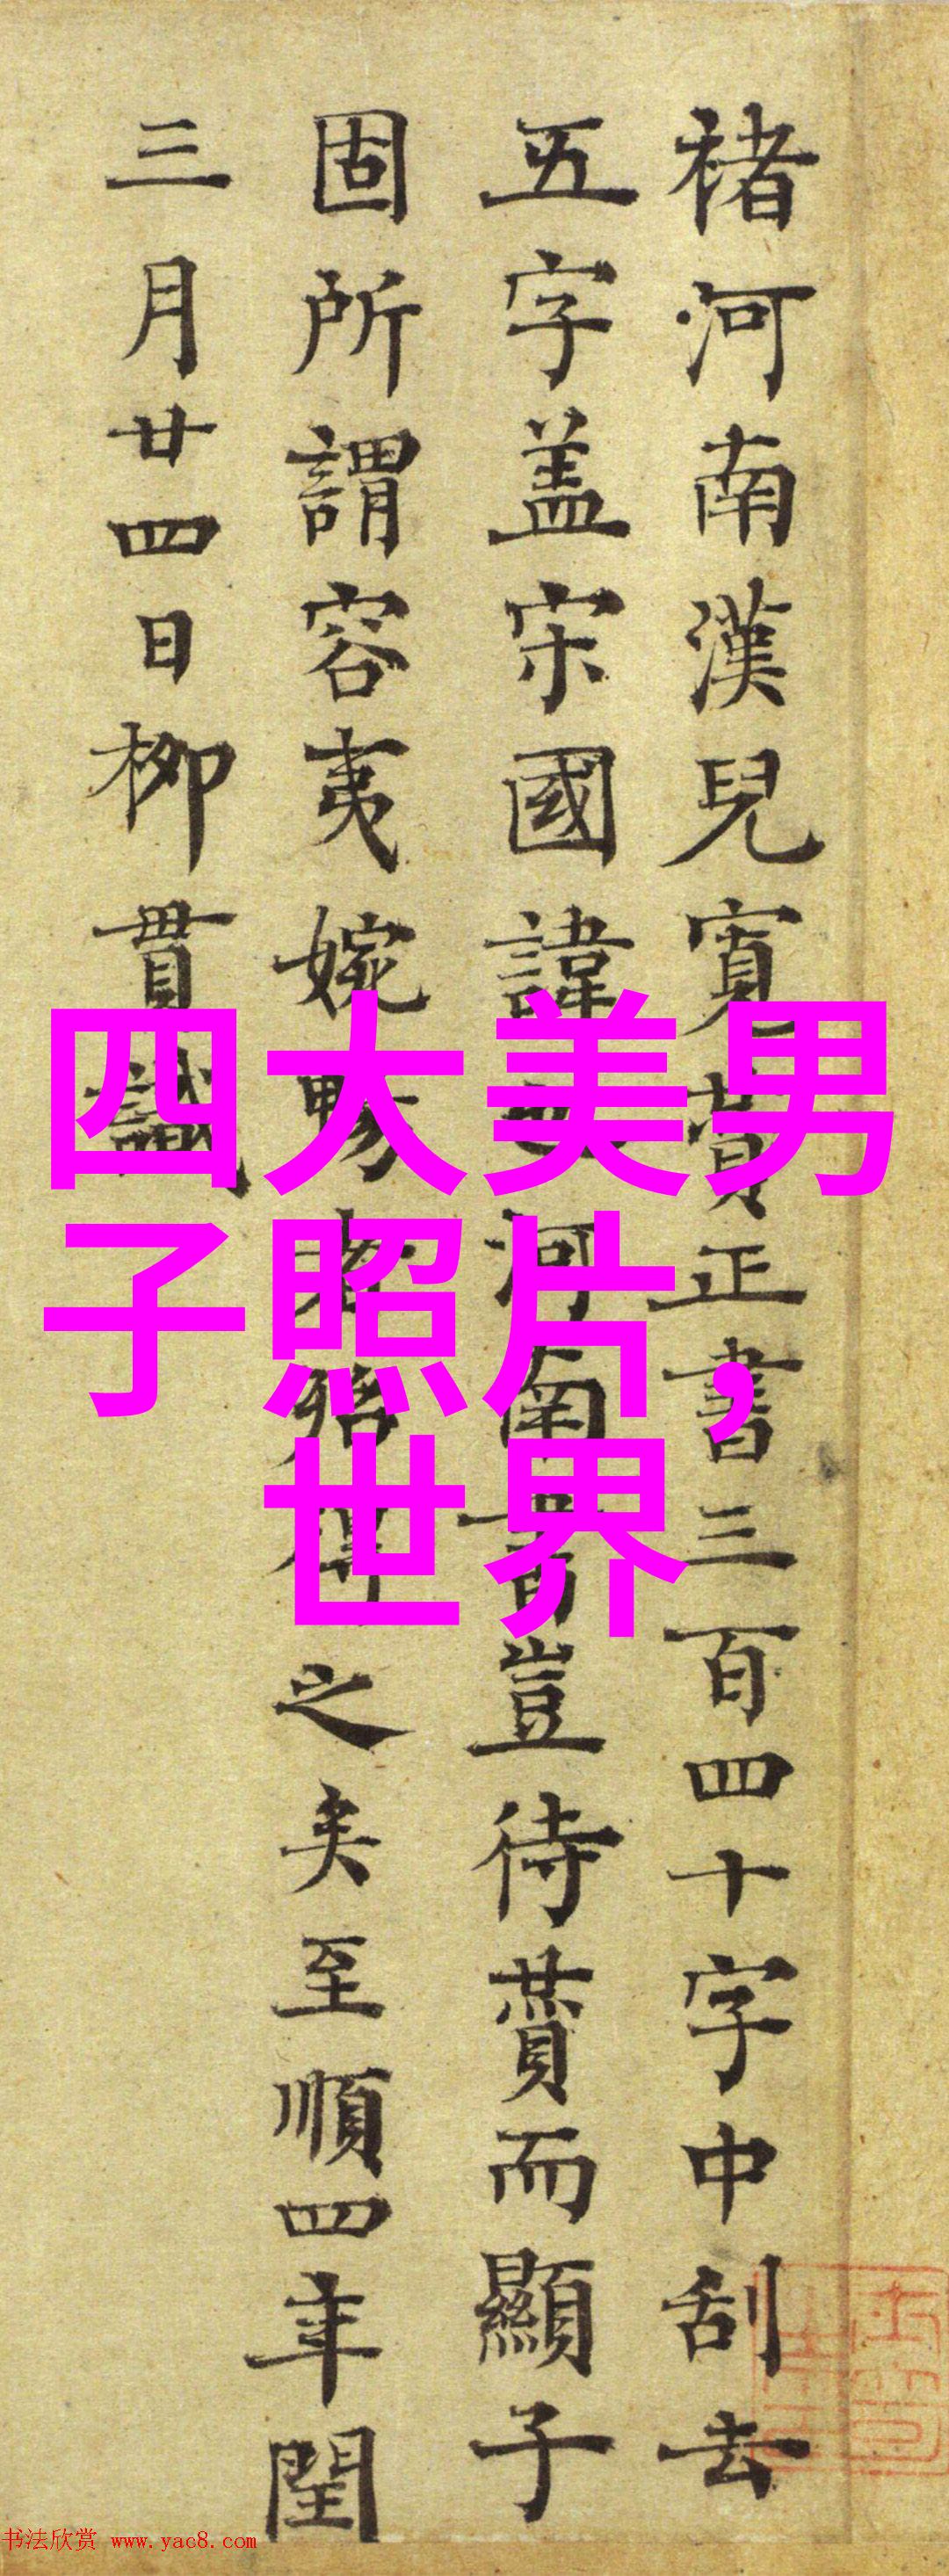 褚河南漢兒寛賛正書三百四十字中刮去
五字盖宋國諱河南書豈待賛而顯子
固所謂容夷婉暢者殆得之矣至順四年閏
三月廿四日柳貫識
四大美男
子照片，
世界
书法欣赏 www.yac8.com